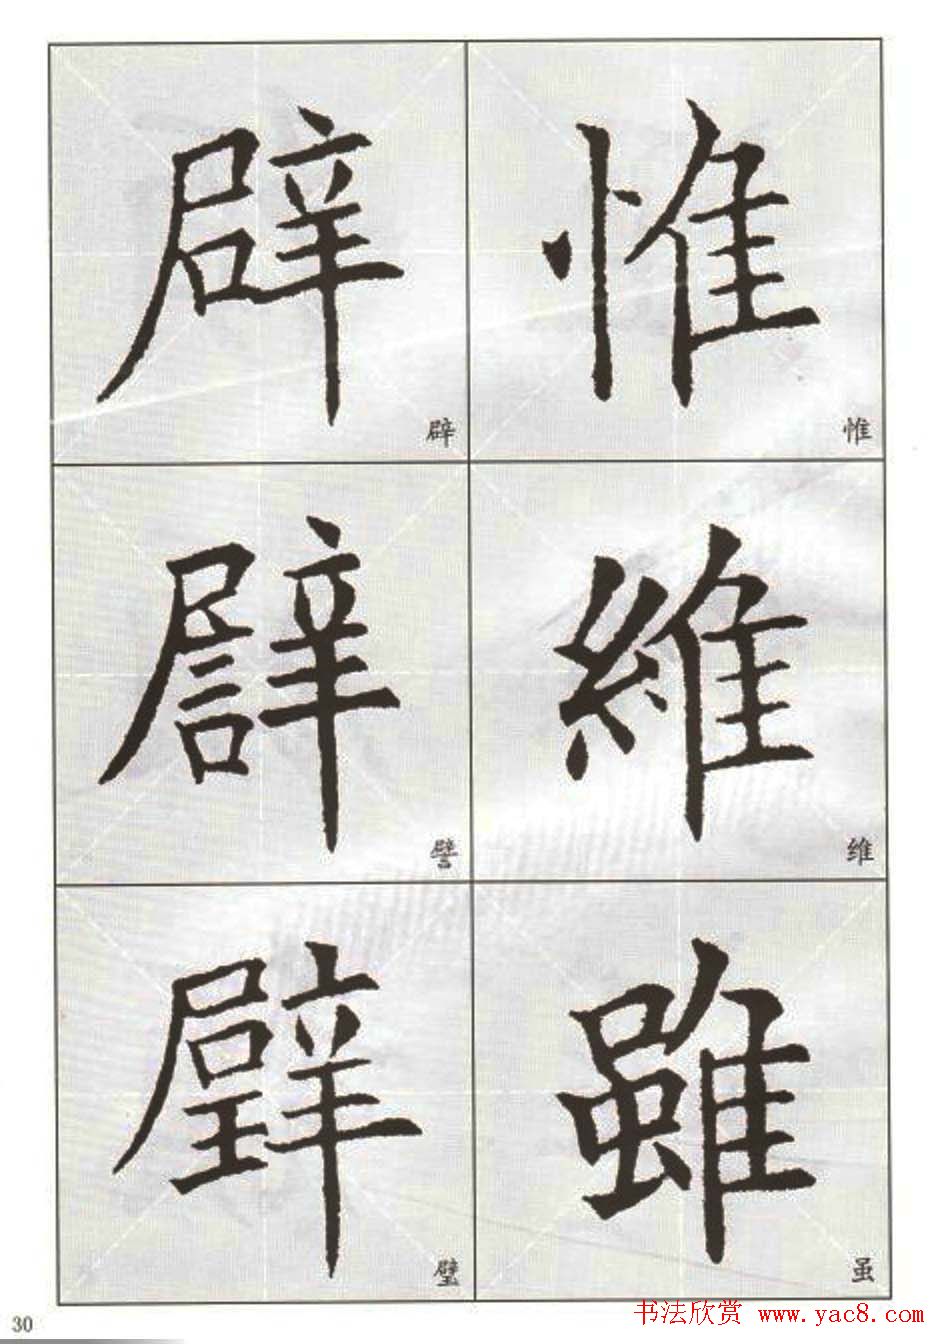 惟
惟
維
维
雖
虽
辟
辟
譬
譬
璧
璧
30
书法欣赏 www.yac8.com